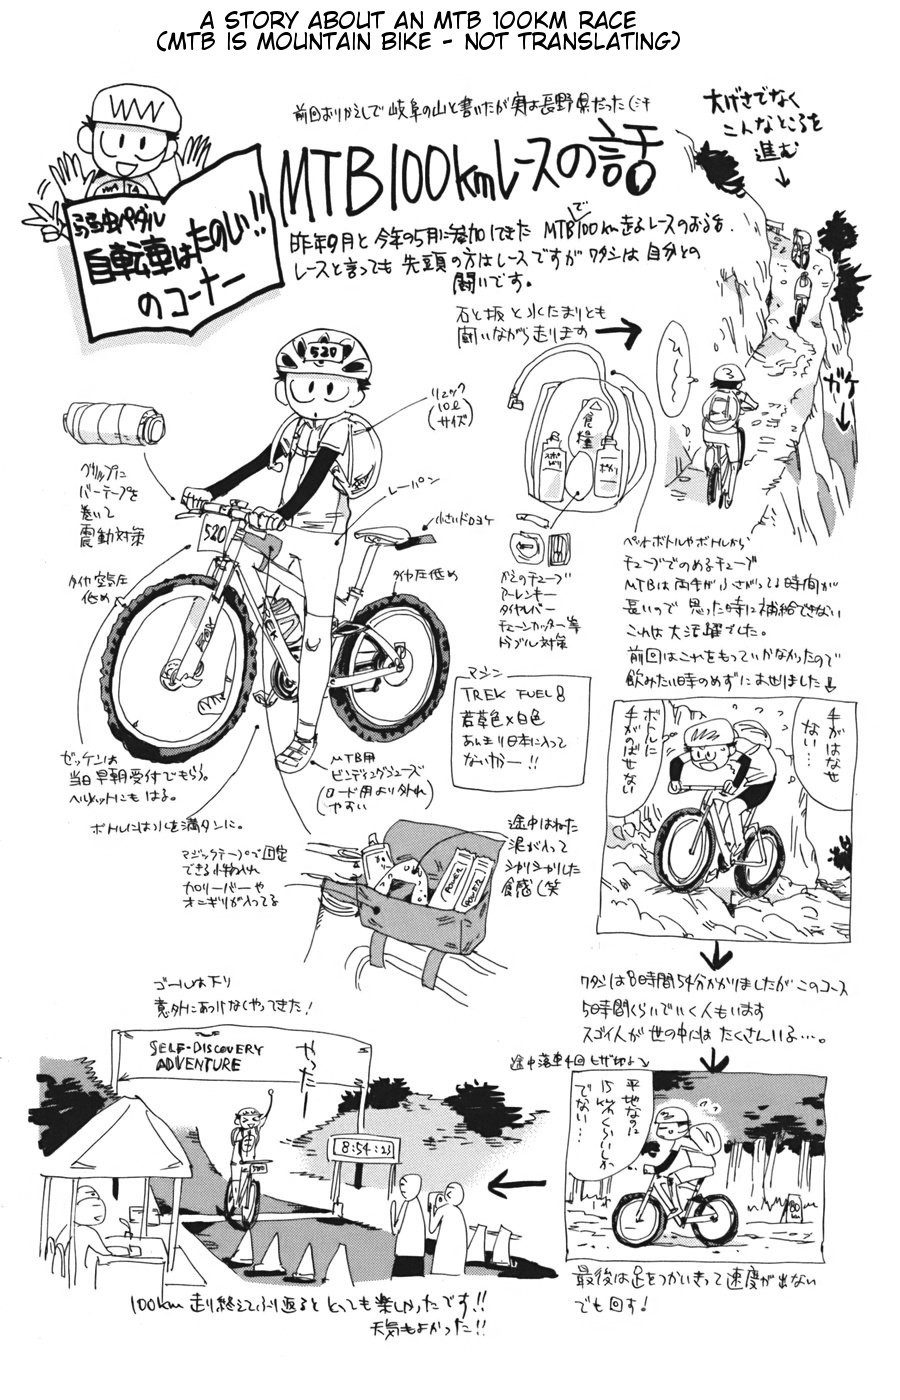 A STORY ABOUT AN MTB 100KM RACE
(MTB IS MOUNTAIN BIKE - NOT TRANSLATING)
前回おりかえしで岐阜の山と書いたが実は長野県だった
MTB100kmレースの話
大げさでなく
こんなところを
進む
弱虫ペダル
自転車はたのしい!!
のコーナー
昨年9月と今年の5月に参加してきた MTBで100km走るレースのおはなし
レースと言っても先頭の方はレースですがワタシは自分との
闘いです。
石と坂と水たまりとも
闘いながら走ります
ひー
ガケ
520
リュック
10ℓ
(サイズ)
食糧
スポドリ
ポカリ
グリップに
バーテープを
巻いて
震動対策
レーパン
小さいドロヨケ
520
タイヤ空気圧
低め
タイヤ圧低め
かえのチューブ
アーレンキー
タイヤレバー
チェーンカッター等
トラブル対策
ペットボトルやボトルから
チューブでのめるチューブ
MTBは両手がふさがってる時間が
長いので思った時に補給できない
これは大活躍でした。
前回はこれをもっていかなかったので
飲みたい時のめずにあせりました
マシン
TREK FUEL 8
若草色×白色
あんまり日本に入って
ないカラー!!
手がはなせない…
ボトルに手がのばせない
ゼッケンは
当日早朝受付でもらう。
ヘルメットにもはる。
MTB用
ビンディングシューズ
(ロード用より外れ
やすい)
ボトルには水を満タンに。
マジックテープで固定
できる小物入れ
カロリーバーや
オニギリが入ってる
途中はねた
泥が入って
シャリシャリした
食感(笑
POWER
ワタシは8時間54分かかりましたがこのコース
5時間くらいでいく人もいます
スゴイ人が世の中にはたくさんいる…。
ゴールは下り
意外にあっけなくやってきた!
SELF-DISCOVERY
ADVENTURE
やったー
8:54:23
520
途中落車4回 ヒザ切る
平地なのに
15km/hくらいしか
でない…
80
最後は足をつかいきって速度が出ない
でも回す!
100km走り終えてふり返るととっても楽しかったです!!
天気もよかった!!